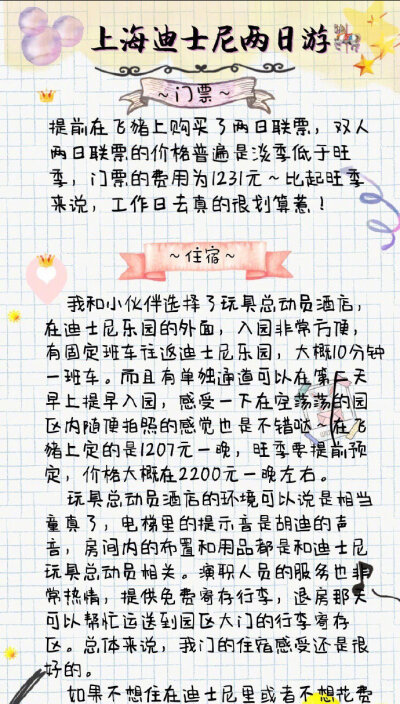 上海迪士尼两日游
～门票～
提前在飞猪上购买了两日联票，双人
两日联票的价格普遍是淡季低于旺
季，门票的费用为1231元～比起旺季
来说，工作日去真的很划算惹！
～住宿～
我和小伙伴选择了玩具总动员酒店，
在迪士尼乐园的外面，入园非常方便，
有固定班车往返迪士尼乐园，大概10分钟
一班车。而且有单独通道可以在第二天
早上提早入园，感受一下在空荡荡的园
区内随便拍照的感觉也是不错哒～在飞
猪上定的是1207元一晚，旺季要提前预
定，价格大概在2200元一晚左右。
玩具总动员酒店的环境可以说是相当
童真了，电梯里的提示音是胡迪的声
音，房间内的布置和用品都是和迪士尼
玩具总动员相关。演职人员的服务也非
常热情，提供免费寄存行李，退房那天
可以帮忙运送到园区大门的行李寄存
区。总体来说，我门的住宿感受还是很
好的。
如果不想住在迪士尼里或者不想花费